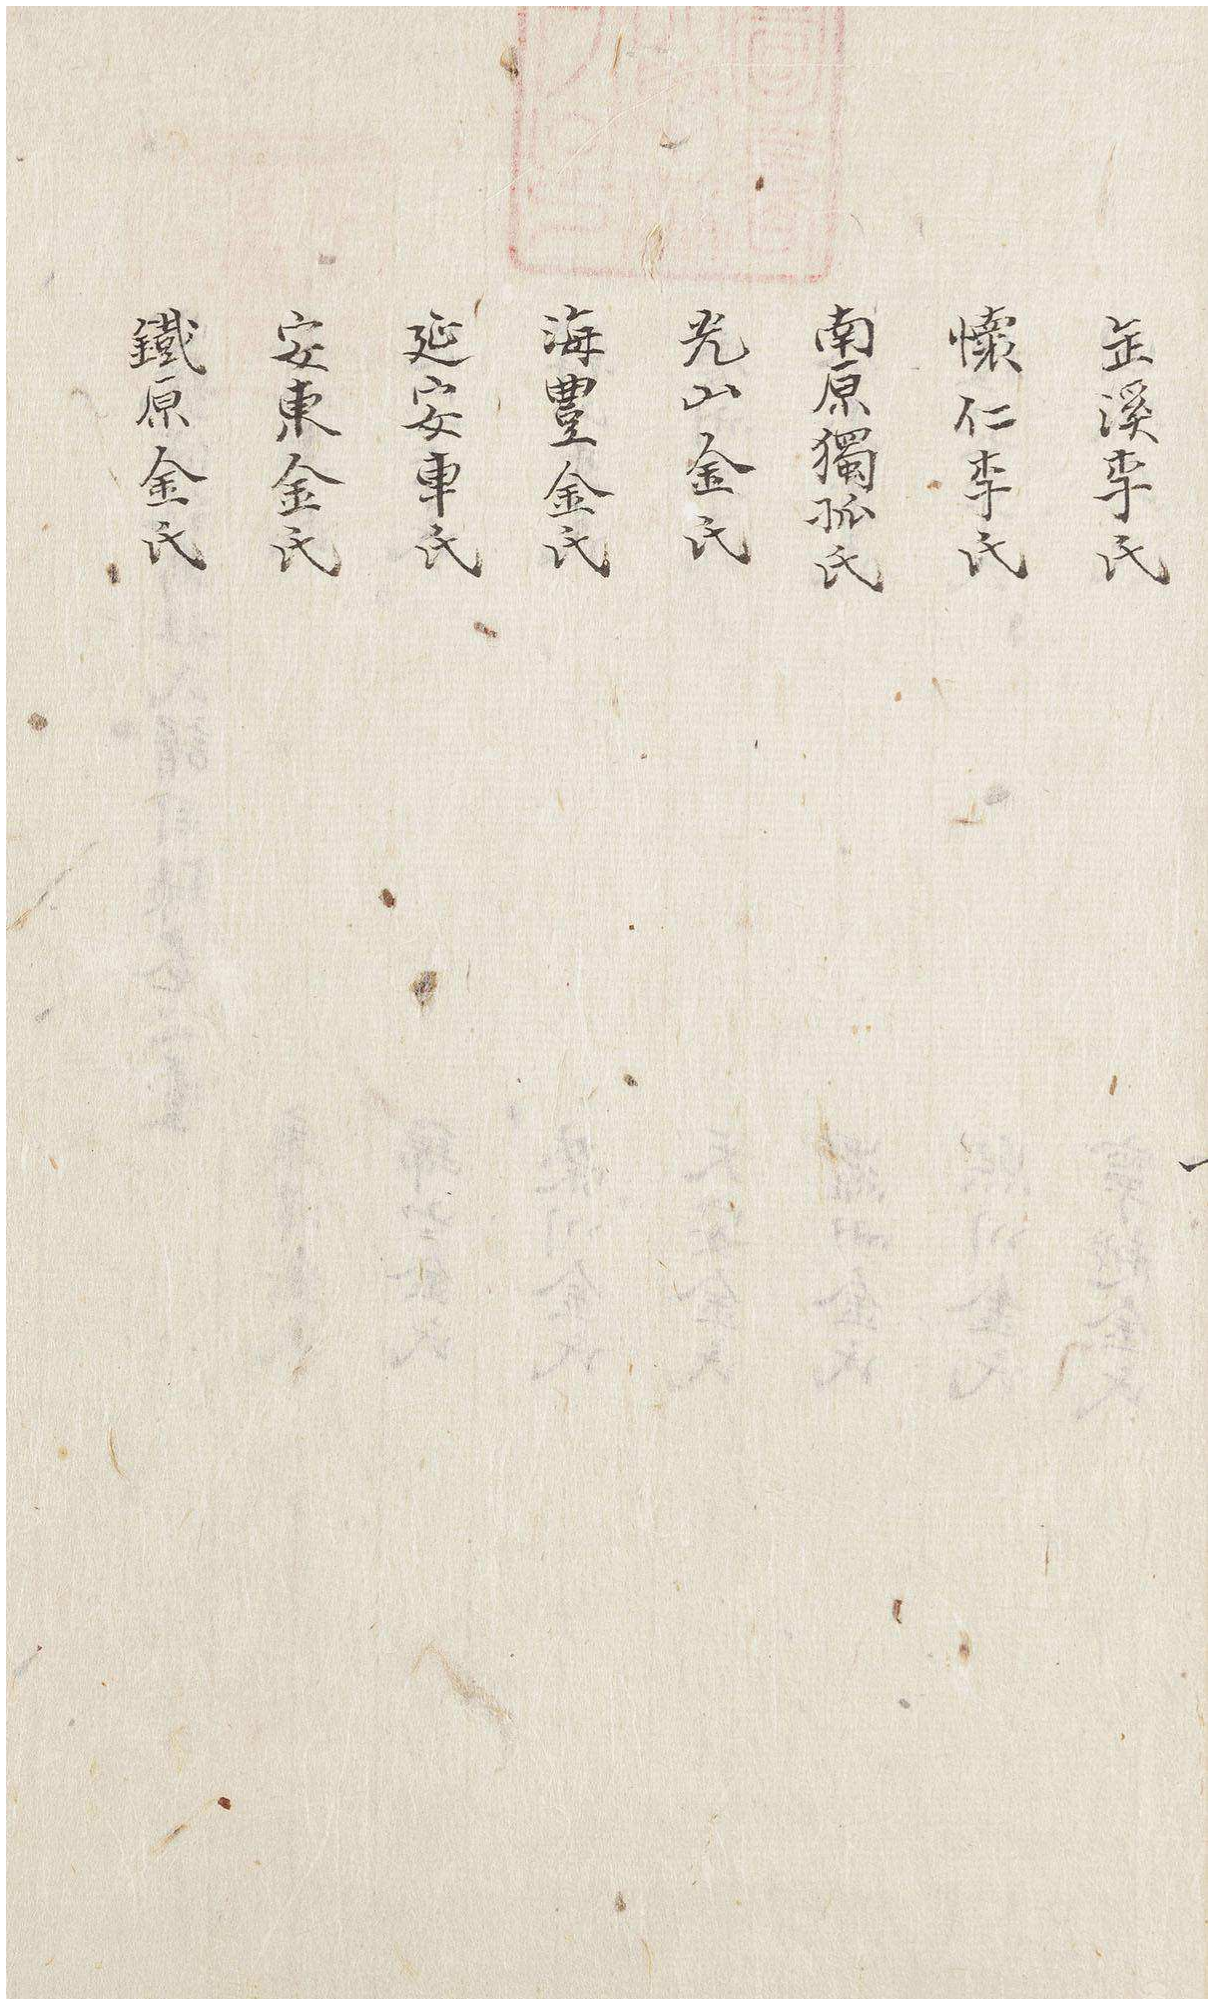 缶溪李氏
懷仁李氏
南原獨孤氏
光山金氏
海豊金氏
延安車氏
安東金氏
鐵原金氏